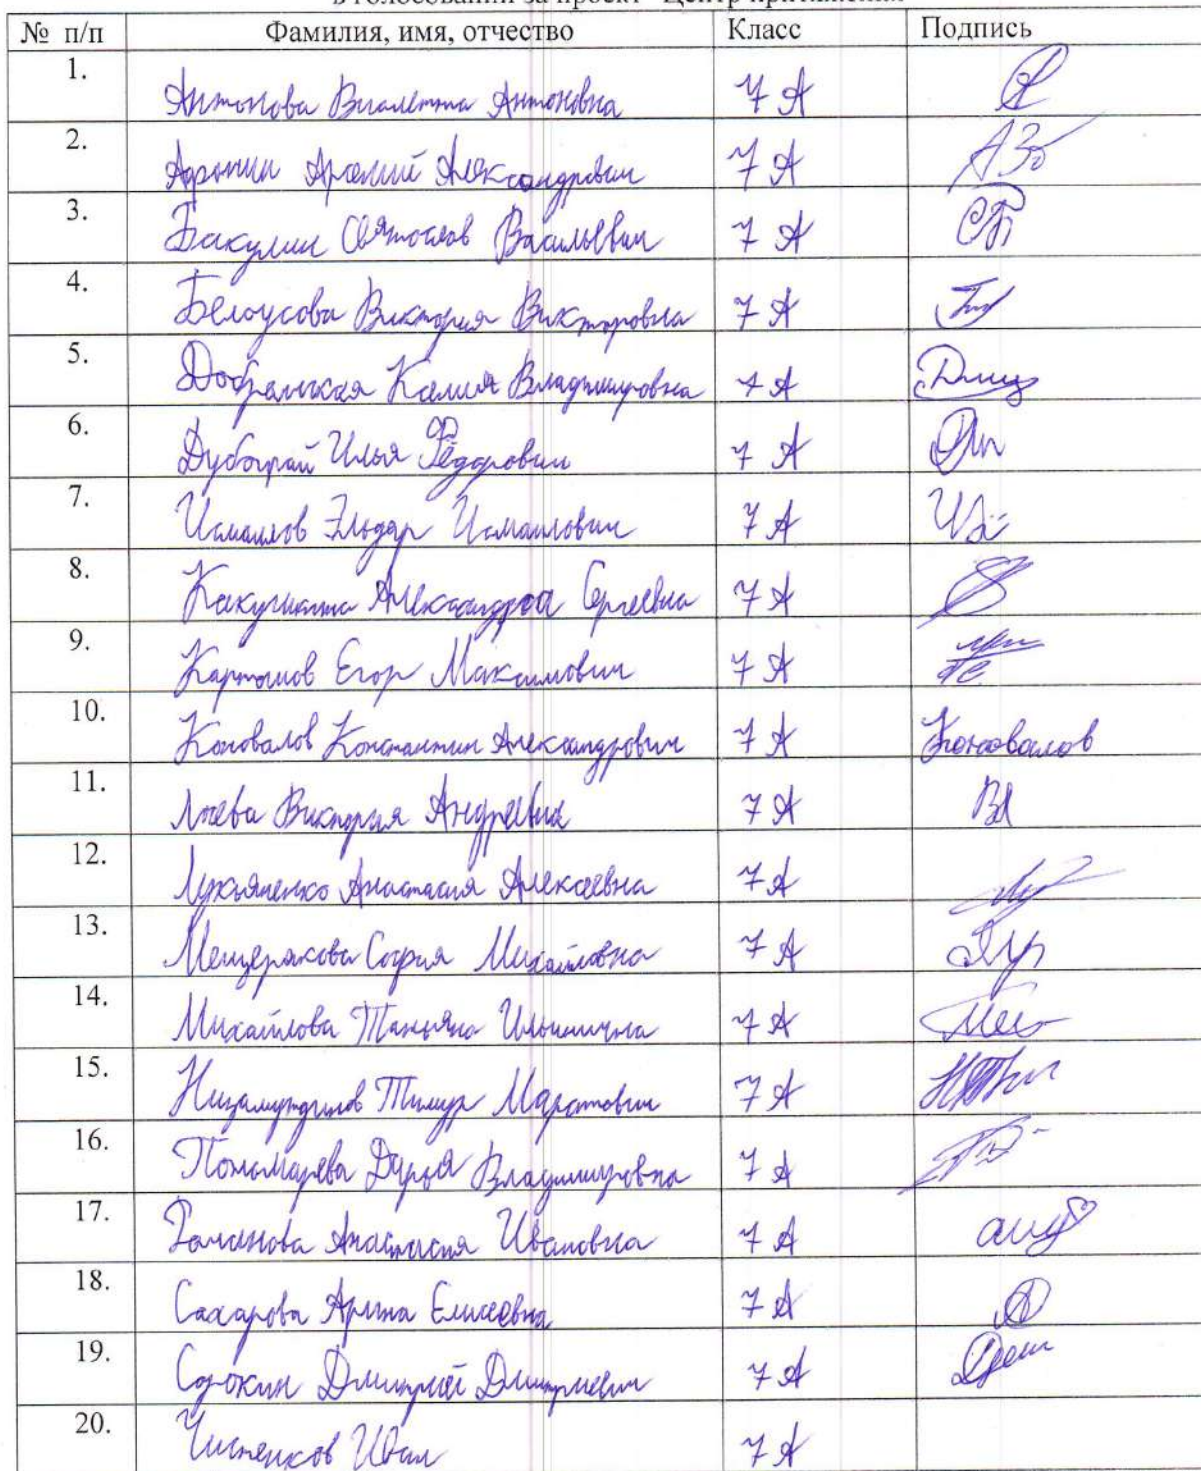 в голосовании за проект "Центр притяжения"
№ п/п Фамилия, имя, отчество Класс Подпись
1. Антонова Виолетта Антоновна 7 А
2. Афонин Арсений Александрович 7 А
3. Бакулин Святослав Васильевич 7 А СБ
4. Белоусова Виктория Викторовна 7 А
5. Владимировна 7 А
6. Илья Фёдорович 7 А
7. Исмаилов Эльдар Исмаилович 7 А
8. Александра Сергеевна 7 А
9. Карташов Егор Максимович 7 А
10. Коновалов Константин Александрович 7 А Коновалов
11. Лосева Виктория Андреевна 7 А ВЛ
12. Лукьяненко Анастасия Алексеевна 7 А
13. Мещерякова София Михайловна 7 А
14. Михайлова Татьяна Ильинична 7 А
15. Низамутдинов Тимур Маратович 7 А
16. Пономарева Дарья Владимировна 7 А
17. Романова Анастасия Ивановна 7 А
18. Сахарова Арина Елисеевна 7 А
19. Сорокин Дмитрий Дмитриевич 7 А
20. Чистенков Иван 7 А